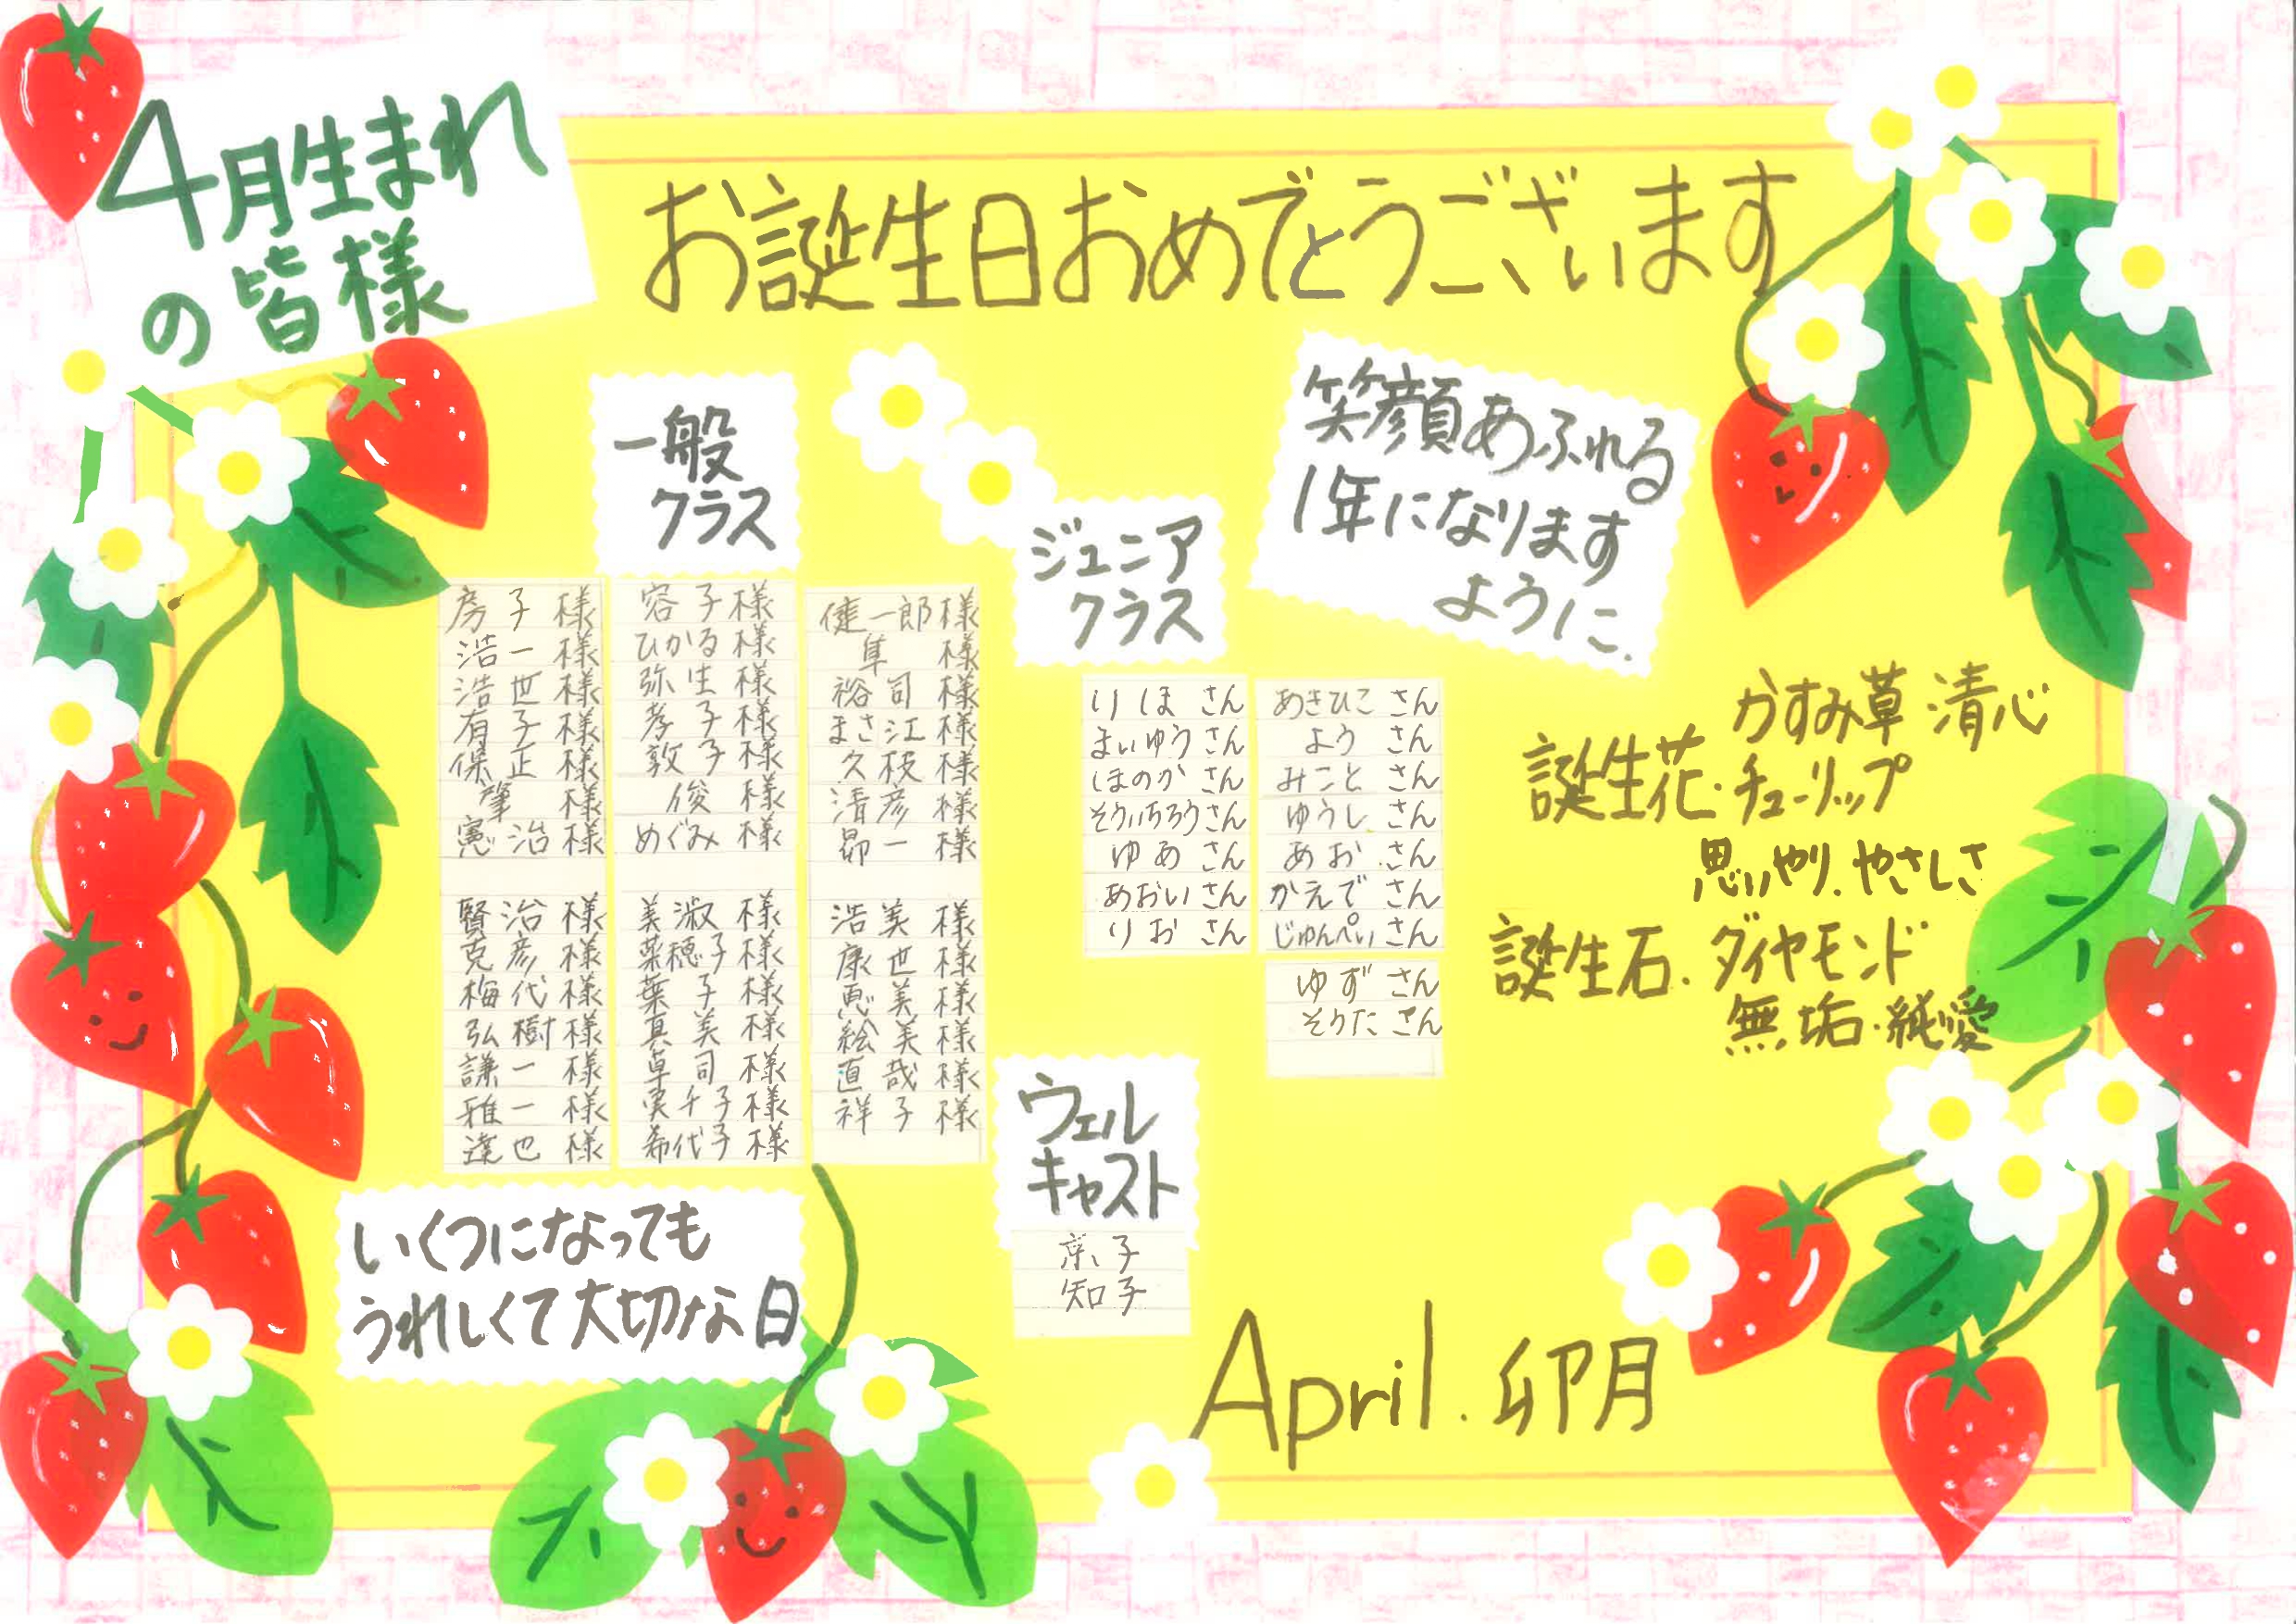 4月生まれ
の皆様
お誕生日おめでとうございます
一般
クラス
房子 様
浩一 様
浩世 様
有子 様
保正 様
肇 様
憲治 様
賢治 様
克彦 様
梅代 様
弘樹 様
謙一 様
雅一 様
達也 様
容子 様
ひかる 様
弥生 様
孝子 様
敦子 様
俊 様
めぐみ 様
美淑 様
菜穂子 様
葉子 様
真美 様
卓司 様
実千子 様
希代子 様
健一郎 様
隼 様
裕司 様
まさ江 様
久枝 様
清彦 様
昴一 様
浩美 様
康世 様
恵美 様
絵美 様
直哉 様
祥子 様
ジュニア
クラス
りほ さん
まいゆう さん
ほのか さん
そういちろう さん
ゆあ さん
あおい さん
りお さん
あきひこ さん
よう さん
みこと さん
ゆうし さん
あお さん
かえで さん
じゅんぺい さん
ゆず さん
そうた さん
ウェル
キャスト
京子
知子
笑顔あふれる
1年になります
ように.
かすみ草 清心
誕生花・チューリップ
思いやり.やさしさ
誕生石.ダイヤモンド
無垢・純愛
いくつになっても
うれしくて大切な日
April.卯月